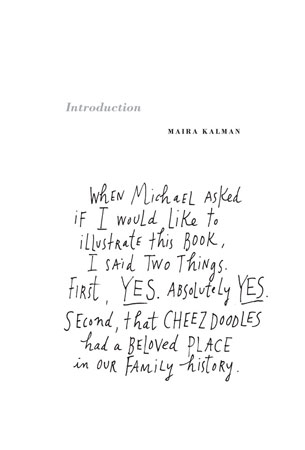 Introduction
MAIRA KALMAN
WHEN Michael asked
iF I would like to
illustrate this BOOK,
I said TWO Things.
First, YES. Absolutely YES.
Second, that CHEEZ DOODLES
had a BELOVED PLACE
in our Family history.